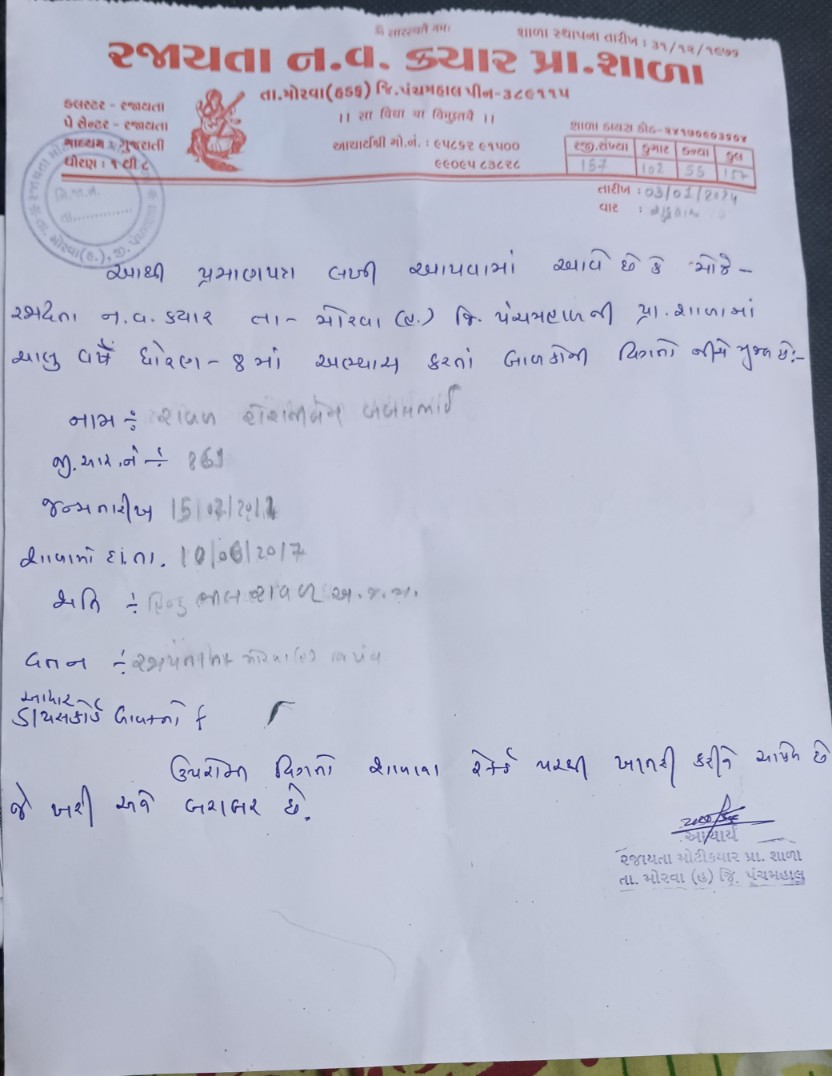 ૐ સરસ્વત્યૈ નમઃ
શાળા સ્થાપના તારીખ : ૩૧/૧૨/૧૯૭૭
રજાયતા ન.વ. ક્યાર પ્રા.શાળા
તા.મોરવા(હડફ) જિ.પંચમહાલ પીન-૩૮૯૧૧૫
।। सा विद्या या विमुक्तये ।।
કલસ્ટર - રજાયતા
પે સેન્ટર - રજાયતા
માધ્યમ : ગુજરાતી
ધોરણ : ૧ થી ૮
આચાર્યશ્રી મો.નં. : ૯૫૮૬૨ ૯૧૫૦૦
૯૯૦૯૫ ૮૩૮૨૮
શાળા ડાયસ કોડ-૨૪૧૭૦૬૦૩૬૦૪
રજી.સંખ્યા કુમાર કન્યા કુલ
157 102 55 157
તારીખ : 03/01/2024
વાર :
આથી પ્રમાણપત્ર લખી આપવામાં આવે છે કે મોજે -
રજાયતા ન.વ. ક્યાર તા- મોરવા (હ.) જિ. પંચમહાળની પ્રા. શાળામાં
ચાલુ વર્ષે ધોરણ - 8 માં અભ્યાસ કરતાં બાળકોની વિગતો નીચે મુજબ છે:-
નામ ઃ રાવળ
જી.આર.નં ઃ 869
જન્મતારીખ 15/02/2012
શાળામાં દા.તા. 10/06/2017
જાતિ ઃ હિન્દુ રાવળ
વતન ઃ
આધાર
ડાયસકોર્ડ
ઉપરોક્ત વિગતો શાળાના રેકર્ડ પરથી ખાતરી કરીને આપેલ છે
જે ખરી અને બરાબર છે.
આચાર્ય
રજાયતા મોટીક્યાર પ્રા. શાળા
તા. મોરવા (હ) જિ. પંચમહાલ